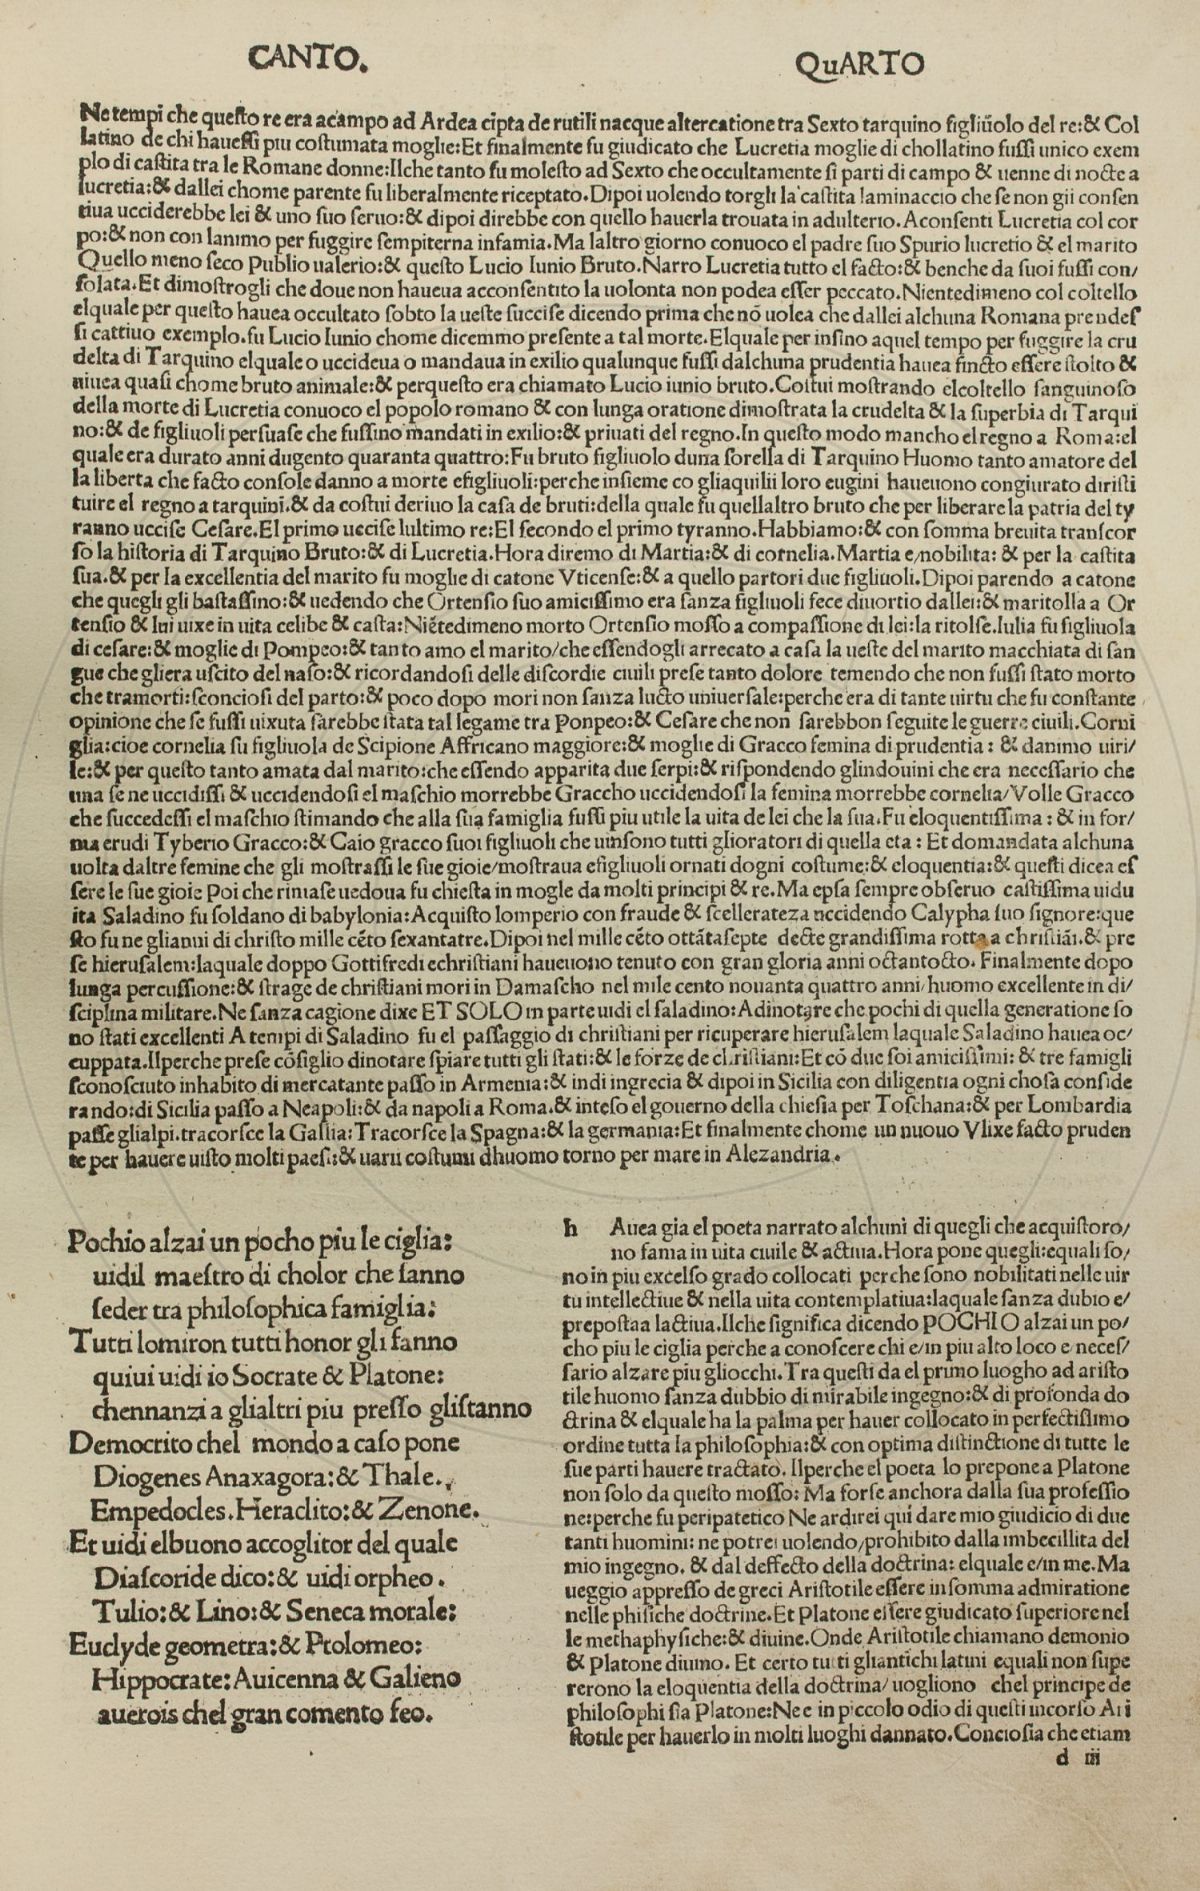 CANTO. QuARTO
Ne tempi che questo re era acampo ad Ardea cipta de rutili nacque altercatione tra Sexto tarquino figliuolo del re:& Col
latino de chi havessi piu costumata moglie:Et finalmente fu giudicato che Lucretia moglie di chollatino fussi unico exem
plo di castita tra le Romane donne:Ilche tanto fu molesto ad Sexto che occultamente si parti di campo & uenne di nocte a
lucretia:& dallei chome parente fu liberalmente riceptato.Dipoi uolendo torgli la castita laminaccio che se non gli consen
tiua ucciderebbe lei & uno suo seruo:& dipoi direbbe con quello hauerla trouata in adulterio.Aconsenti Lucretia col cor
po:& non con lanimo per fuggire sempiterna infamia.Ma laltro giorno conuoco el padre suo Spurio lucretio & el marito
Quello meno seco Publio ualerio:& questo Lucio Iunio Bruto.Narro Lucretia tutto el facto:& benche da suoi fussi con/
solata.Et dimostrogli che doue non haueua acconsentito la uolonta non podea esser peccato.Nientedimeno col coltello
elquale per questo hauea occultato sobto la ueste succise dicendo prima che nō uolea che dallei alchuna Romana prendes
si cattiuo exemplo.fu Lucio Iunio chome dicemmo presente a tal morte.Elquale per insino aquel tempo per fuggire la cru
delta di Tarquino elquale o uccideua o mandaua in exilio qualunque fussi dalchuna prudentia hauea fincto essere stolto &
uiuea quasi chome bruto animale:& perquesto era chiamato Lucio iunio bruto.Costui mostrando elcoltello sanguinoso
della morte di Lucretia conuoco el popolo romano & con lunga oratione dimostrata la crudelta & la superbia di Tarqui
no:& de figliuoli persuase che fussino mandati in exilio:& priuati del regno.In questo modo mancho el regno a Roma:el
quale era durato anni dugento quaranta quattro:Fu bruto figliuolo duna sorella di Tarquino Huomo tanto amatore del
la liberta che facto console danno a morte efigliuoli:perche insieme co gliaquilii loro cugini haueuono congiurato diristi
tuire el regno a tarquini.& da costui deriuo la casa de bruti:della quale fu quellaltro bruto che per liberare la patria del ty
ranno uccise Cesare.El primo uccise lultimo re:El secondo el primo tyranno.Habbiamo:& con somma breuita transcor
so la historia di Tarquino Bruto:& di Lucretia.Hora diremo di Martia:& di cornelia.Martia e/nobilita: & per la castita
sua.& per la excellentia del marito fu moglie di catone Vticense:& a quello partori due figliuoli.Dipoi parendo a catone
che quegli gli bastassino:& uedendo che Ortensio suo amicissimo era sanza figliuoli fece diuortio dallei:& maritolla a Or
tensio & lui uixe in uita celibe & casta:Niētedimeno morto Ortensio mosso a compassione di lei:la ritolse.Iulia fu figliuola
di cesare:& moglie di Pompeo:& tanto amo el marito/che essendogli arrecato a casa la ueste del marito macchiata di san
gue che gliera uscito del naso:& ricordandosi delle discordie ciuili prese tanto dolore temendo che non fussi stato morto
che tramorti:sconciosi del parto:& poco dopo mori non sanza lucto uniuersale:perche era di tante uirtu che fu constante
opinione che se fussi uixuta sarebbe stata tal legame tra Ponpeo:& Cesare che non sarebbon seguite le guerre ciuili.Corni
glia:cioe cornelia fu figliuola de Scipione Affricano maggiore:& moglie di Gracco femina di prudentia: & danimo uiri/
le:& per questo tanto amata dal marito:che essendo apparita due serpi:& rispondendo glindouini che era necessario che
una se ne uccidissi & uccidendosi el maschio morrebbe Graccho uccidendosi la femina morrebbe cornelia/Volle Gracco
che succedessi el maschio stimando che alla sua famiglia fussi piu utile la uita de lei che la sua.Fu eloquentissima: & in for/
ma erudi Tyberio Gracco:& Caio gracco suoi figliuoli che uinsono tutti glioratori di quella eta: Et domandata alchuna
uolta daltre femine che gli mostrassi le sue gioie/mostraua efigliuoli ornati dogni costume:& eloquentia:& questi dicea es
sere le sue gioie Poi che rimase uedoua fu chiesta in mogle da molti principi & re.Ma epsa sempre obseruo castissima uidu
ita Saladino fu soldano di babylonia:Acquisto lomperio con fraude & scellerateza uccidendo Calypha suo signore:que
sto fu ne glianni di christo mille cēto sexantatre.Dipoi nel mille cēto ottātasepte decte grandissima rotta a christiāi.& pre
se hierusalem:laquale doppo Gottifredi echristiani haueuono tenuto con gran gloria anni octantocto. Finalmente dopo
lunga percussione:& strage de christiani mori in Damascho nel mile cento nouanta quattro anni/huomo excellente in di/
sciplina militare.Ne sanza cagione dixe ET SOLO in parte uidi el saladino:Adinotare che pochi di quella generatione so
no stati excellenti A tempi di Saladino fu el passaggio di christiani per ricuperare hierusalem laquale Saladino hauea oc/
cuppata.Ilperche prese cōsiglio dinotare spiare tutti gli stati:& le forze de christiani:Et cō due soi amicissimi: & tre famigli
sconosciuto inhabito di mercatante passo in Armenia:& indi ingrecia & dipoi in Sicilia con diligentia ogni chosa conside
rando:di Sicilia passo a Neapoli:& da napoli a Roma.& inteso el gouerno della chiesia per Toschana:& per Lombardia
passe glialpi.tracorsce la Gallia:Tracorsce la Spagna:& la germania:Et finalmente chome un nuouo Vlixe facto pruden
te per hauere uisto molti paesi:& uarii costumi dhuomo torno per mare in Alezandria.
Pochio alzai un pocho piu le ciglia:
uidil maestro di cholor che sanno
seder tra philosophica famiglia:
Tutti lomiron tutti honor gli fanno
quiui uidi io Socrate & Platone:
chennanzi a glialtri piu presso glistanno
Democrito chel mondo a caso pone
Diogenes Anaxagora:& Thale.
Empedocles.Heraclito:& Zenone.
Et uidi elbuono accoglitor del quale
Diascoride dico:& uidi orpheo.
Tulio:& Lino:& Seneca morale:
Euclyde geometra:& Ptolomeo:
Hippocrate:Auicenna & Galieno
auerois chel gran comento feo.
h Auea gia el poeta narrato alchuni di quegli che acquistoro/
no fama in uita ciuile & actiua.Hora pone quegli:equali so/
no in piu excelso grado collocati perche sono nobilitati nelle uir
tu intellectiue & nella uita contemplatiua:laquale sanza dubio e/
preposta a lactiua.Ilche significa dicendo POCHIO alzai un po/
cho piu le ciglia perche a conoscere chi e/in piu alto loco e neces/
sario alzare piu gliocchi.Tra questi da el primo luogho ad aristo
tile huomo sanza dubbio di mirabile ingegno:& di profonda do
ctrina & elquale ha la palma per hauer collocato in perfectissimo
ordine tutta la philosophia:& con optima distinctione di tutte le
sue parti hauere tractato. Ilperche el poeta lo prepone a Platone
non solo da questo mosso: Ma forse anchora dalla sua professio
ne:perche fu peripatetico Ne ardirei qui dare mio giudicio di due
tanti huomini: ne potrei uolendo/prohibito dalla imbecillita del
mio ingegno. & dal deffecto della doctrina: elquale e/in me.Ma
ueggio appresso de greci Aristotile essere in somma admiratione
nelle phisiche doctrine.Et Platone essere giudicato superiore nel
le methaphysiche:& diuine.Onde Aristotile chiamano demonio
& Platone diuino. Et certo tutti gliantichi latini equali non supe
rerono la eloquentia della doctrina/uogliono chel principe de
philosophi sia Platone:Ne e in piccolo odio di questi incorso Ari
stotile per hauerlo in molti luoghi dannato.Conciosia che etiam
d iii